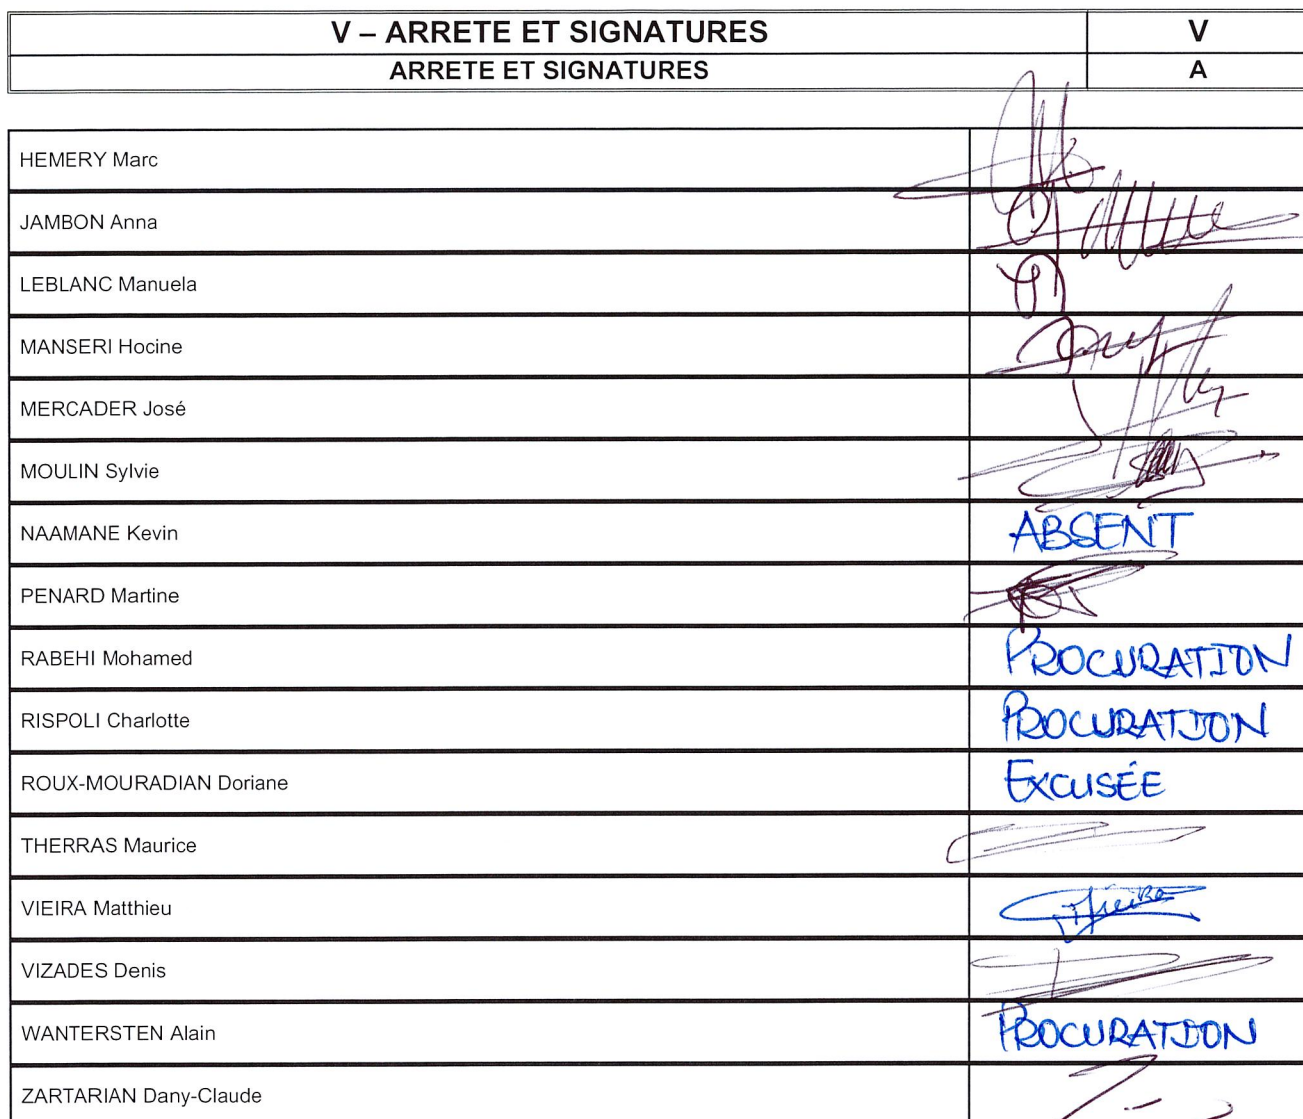 V – ARRETE ET SIGNATURES V
ARRETE ET SIGNATURES A
HEMERY Marc
JAMBON Anna
LEBLANC Manuela
MANSERI Hocine
MERCADER José
MOULIN Sylvie
NAAMANE Kevin ABSENT
PENARD Martine
RABEHI Mohamed PROCURATION
RISPOLI Charlotte PROCURATION
ROUX-MOURADIAN Doriane EXCUSÉE
THERRAS Maurice
VIEIRA Matthieu
VIZADES Denis
WANTERSTEN Alain PROCURATION
ZARTARIAN Dany-Claude